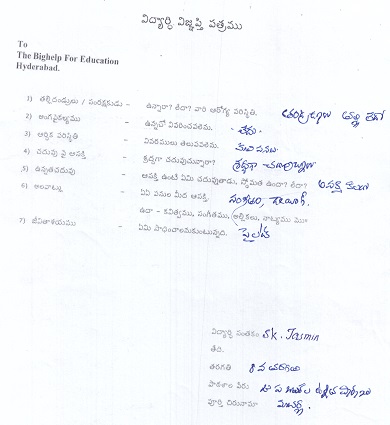 విద్యార్థి విజ్ఞప్తి పత్రము
To
The Bighelp For Education
Hyderabad.
1) తల్లిదండ్రులు / సంరక్షకుడు - ఉన్నారా? లేదా? వారి ఆరోగ్య పరిస్థితి.
2) అంగవైకల్యము - ఉన్నచో వివరించవలెను. లేదు
3) ఆర్థిక పరిస్థితి - వివరములు తెలుపవలెను.
4) చదువు పై ఆసక్తి - శ్రద్ధగా చదువుచున్నారా? శ్రద్ధగా
5) ఉన్నతచదువు - ఆసక్తి ఉంటే ఏమి చదువుతాడు, స్తోమత ఉందా? లేదా?
6) అలవాట్లు - ఏఏ పనుల మీద ఆసక్తి. సంగీతం, డ్రాయింగ్.
ఉదా - కవిత్వము, సంగీతము, అల్లికలు, నాట్యము
7) జీవితాశయము - ఏమి సాధించాలనుకుంటున్నది. పైలట్
విద్యార్థి సంతకం SK. Jasmin
తేది.
తరగతి 8 వ తరగతి
పాఠశాల పేరు
పూర్తి చిరునామా